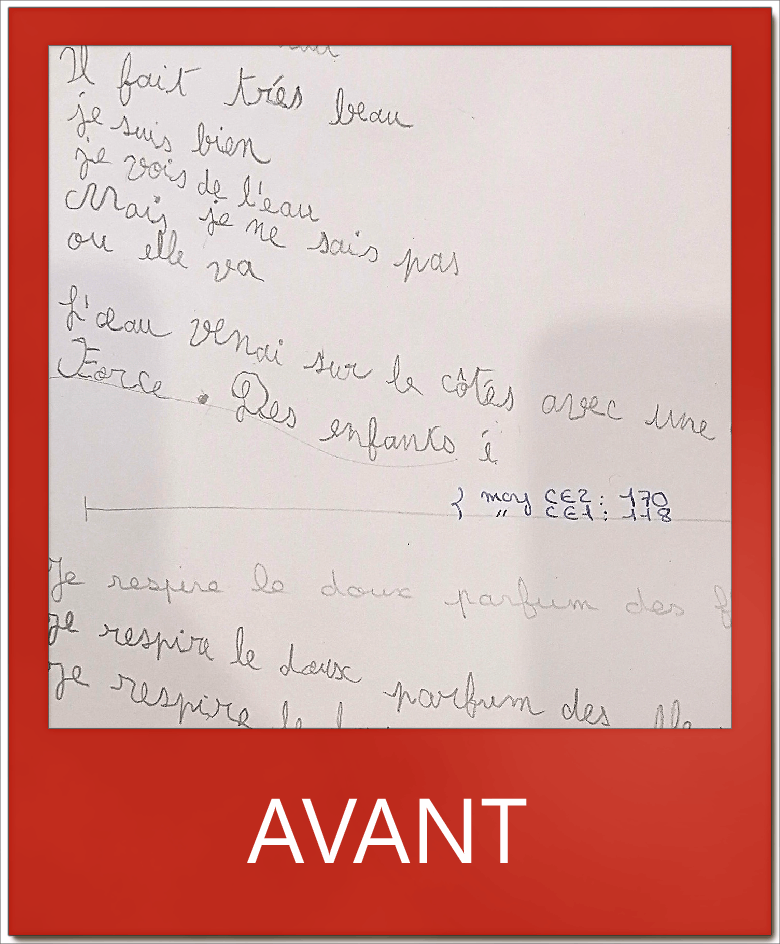 Il fait trés beau
je suis bien
je vois de l'eau
Mais je ne sais pas
ou elle va
L'eau venai sur le côtés avec une
Force. Des enfants é
{ moy CE2 : 170
" CE1 : 118
Je respire le doux parfum des f
je respire le doux parfum des
je respire le
AVANT